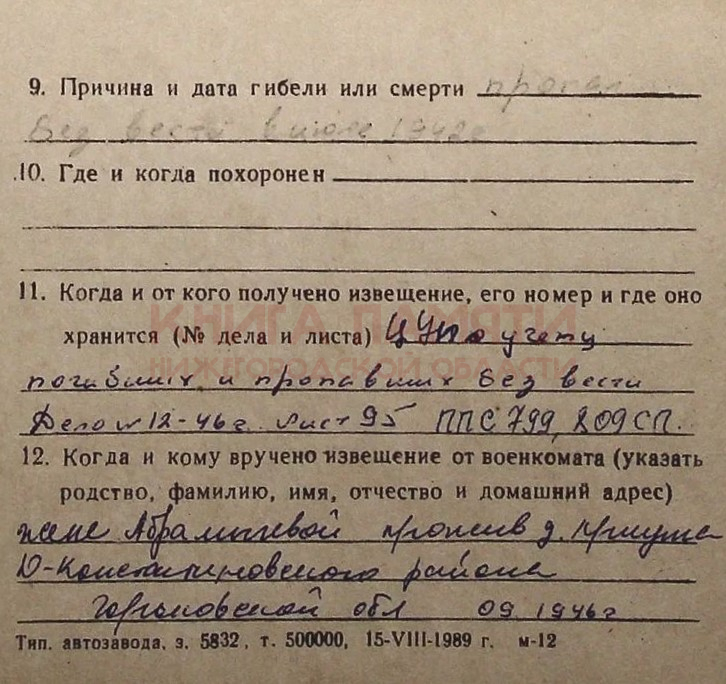 9. Причина и дата гибели или смерти пропал
без вести в июле 1942г
10. Где и когда похоронен
11. Когда и от кого получено извещение, его номер и где оно
хранится (№ дела и листа) ЦУПоучету
погибших и пропавших без вести
Дело №12-46г. Лист 95 ППС 799, 209 СП.
12. Когда и кому вручено извещение от военкомата (указать
родство, фамилию, имя, отчество и домашний адрес)
жене Абрамычевой прожив д.
Д-Константиновского района
Горьковской обл 09.1946г
Тип. автозавода, з. 5832, т. 500000, 15-VIII-1989 г. м-12
КНИГА ПАМЯТИ
НИЖЕГОРОДСКОЙ ОБЛАСТИ